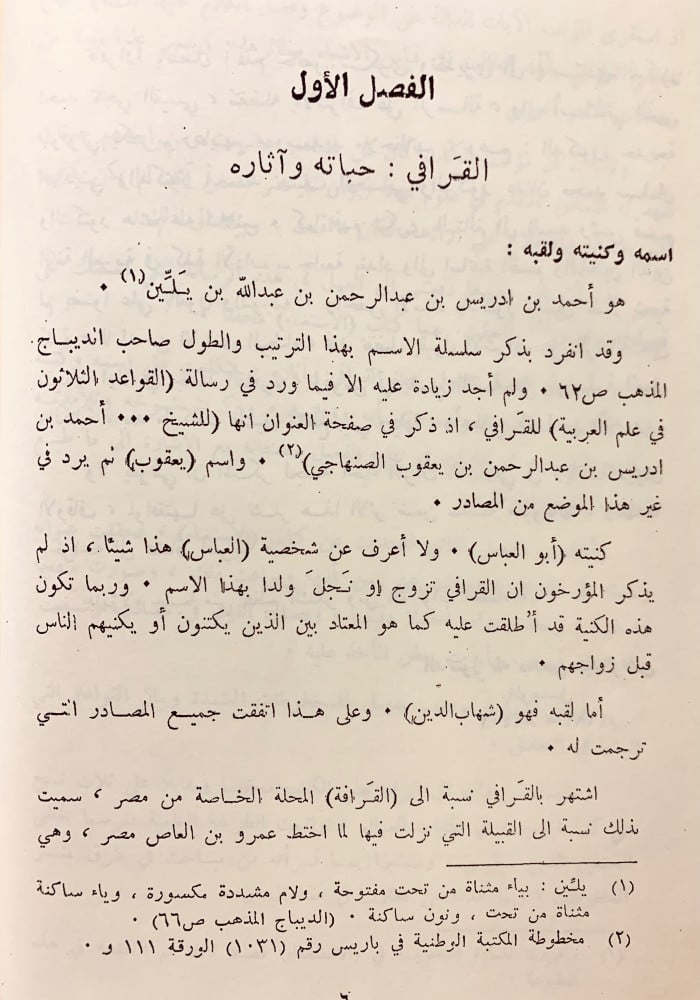 الفصل الأول
القَرافي : حياته وآثاره
اسمه وكنيته ولقبه :
هو أحمد بن ادريس بن عبدالرحمن بن عبدالله بن يَلِّين(١) ٠
وقد انفرد بذكر سلسلة الاسم بهذا الترتيب والطول صاحب الديباج
المذهب ص٦٢ ٠ ولم أجد زيادة عليه الا فيما ورد في رسالة (القواعد الثلاثون
في علم العربية) للقَرافي ، اذ ذكر في صفحة العنوان انها (للشيخ ٠٠٠ أحمد بن
ادريس بن عبدالرحمن بن يعقوب الصنهاجي)(٢) ٠ واسم (يعقوب) لم يرد في
غير هذا الموضع من المصادر ٠
كنيته (أبو العباس) ٠ ولا أعرف عن شخصية (العباس) هذا شيئا ، اذ لم
يذكر المؤرخون ان القرافي تزوج او نَجلَ ولدا بهذا الاسم ٠ وربما تكون
هذه الكنية قد أُطلقت عليه كما هو المعتاد بين الذين يكتنون أو يكنيهم الناس
قبل زواجهم ٠
أما لقبه فهو (شهاب‌الدين) ٠ وعلى هذا اتفقت جميع المصادر التي
ترجمت له ٠
اشتهر بالقَرافي نسبة الى (القَرافة) المحلة الخاصة من مصر ، سميت
بذلك نسبة الى القبيلة التي نزلت فيها لما اختط عمرو بن العاص مصر ، وهي
(١) يلِّين : بياء مثناة من تحت مفتوحة ، ولام مشددة مكسورة ، وياء ساكنة
مثناة من تحت ، ونون ساكنة ٠ (الديباج المذهب ص٦٦) ٠
(٢) مخطوطة المكتبة الوطنية في باريس رقم (١٠٣١) الورقة ١١١ و ٠
٦